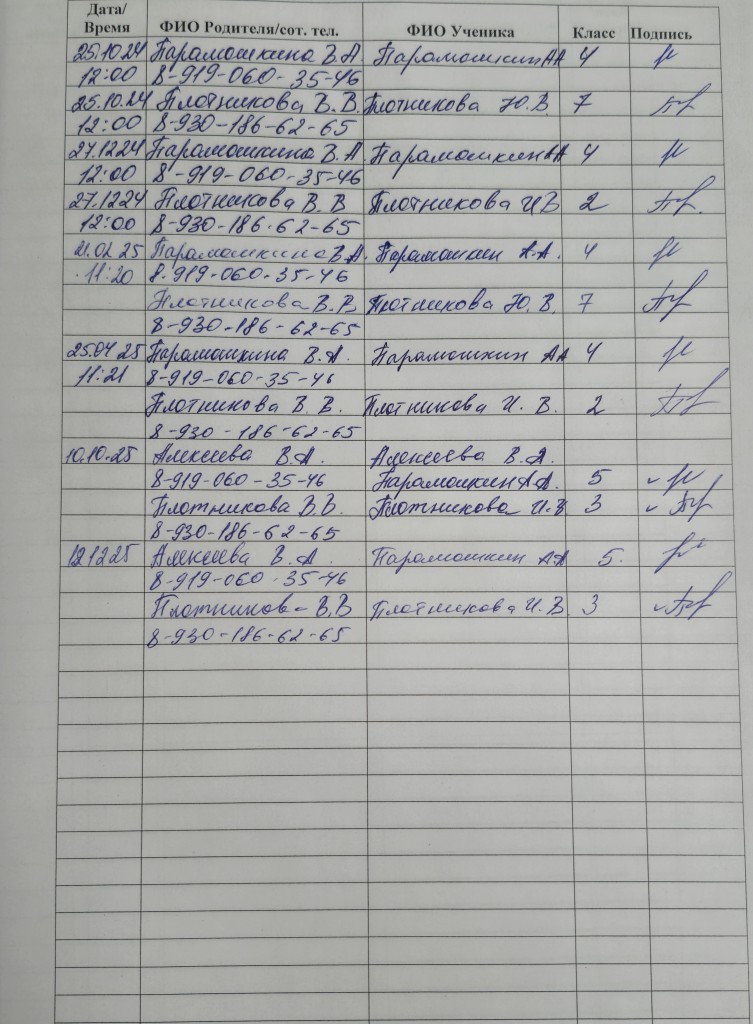 Дата/ Время ФИО Родителя/сот. тел. ФИО Ученика Класс Подпись
25.10.24 Парамошкина В.А. Парамошкин АА 4
12:00 8-919-060-35-46
25.10.24 Плотникова В.В. Плотникова Ю.В. 7
12:00 8-930-186-62-65
27.1224 Парамошкина В.А Парамошкин АА 4
12:00 8-919-060-35-46
27.1224 Плотникова В.В Плотникова И.В 2
12:00 8-930-186-62-65
21.02.25 Парамошкина В.А. Парамошкин А.А. 4
11:20 8-919-060-35-46
Плотникова В.В Плотникова Ю.В. 7
8-930-186-62-65
25.04.25 Парамошкина В.А. Парамошкин АА 4
11:21 8-919-060-35-46
Плотникова В.В. Плотникова И.В. 2
8-930-186-62-65
10.10.25 Алексеева В.А. Алексеева В.А.
8-919-060-35-46 Парамошкин А.А. 5
Плотникова В.В. Плотникова И.В 3
8-930-186-62-65
Алексеева В.А Парамошкин АА 5.
8-919-060-35-46
Плотникова В.В Плотникова И.В. 3
8-930-186-62-65